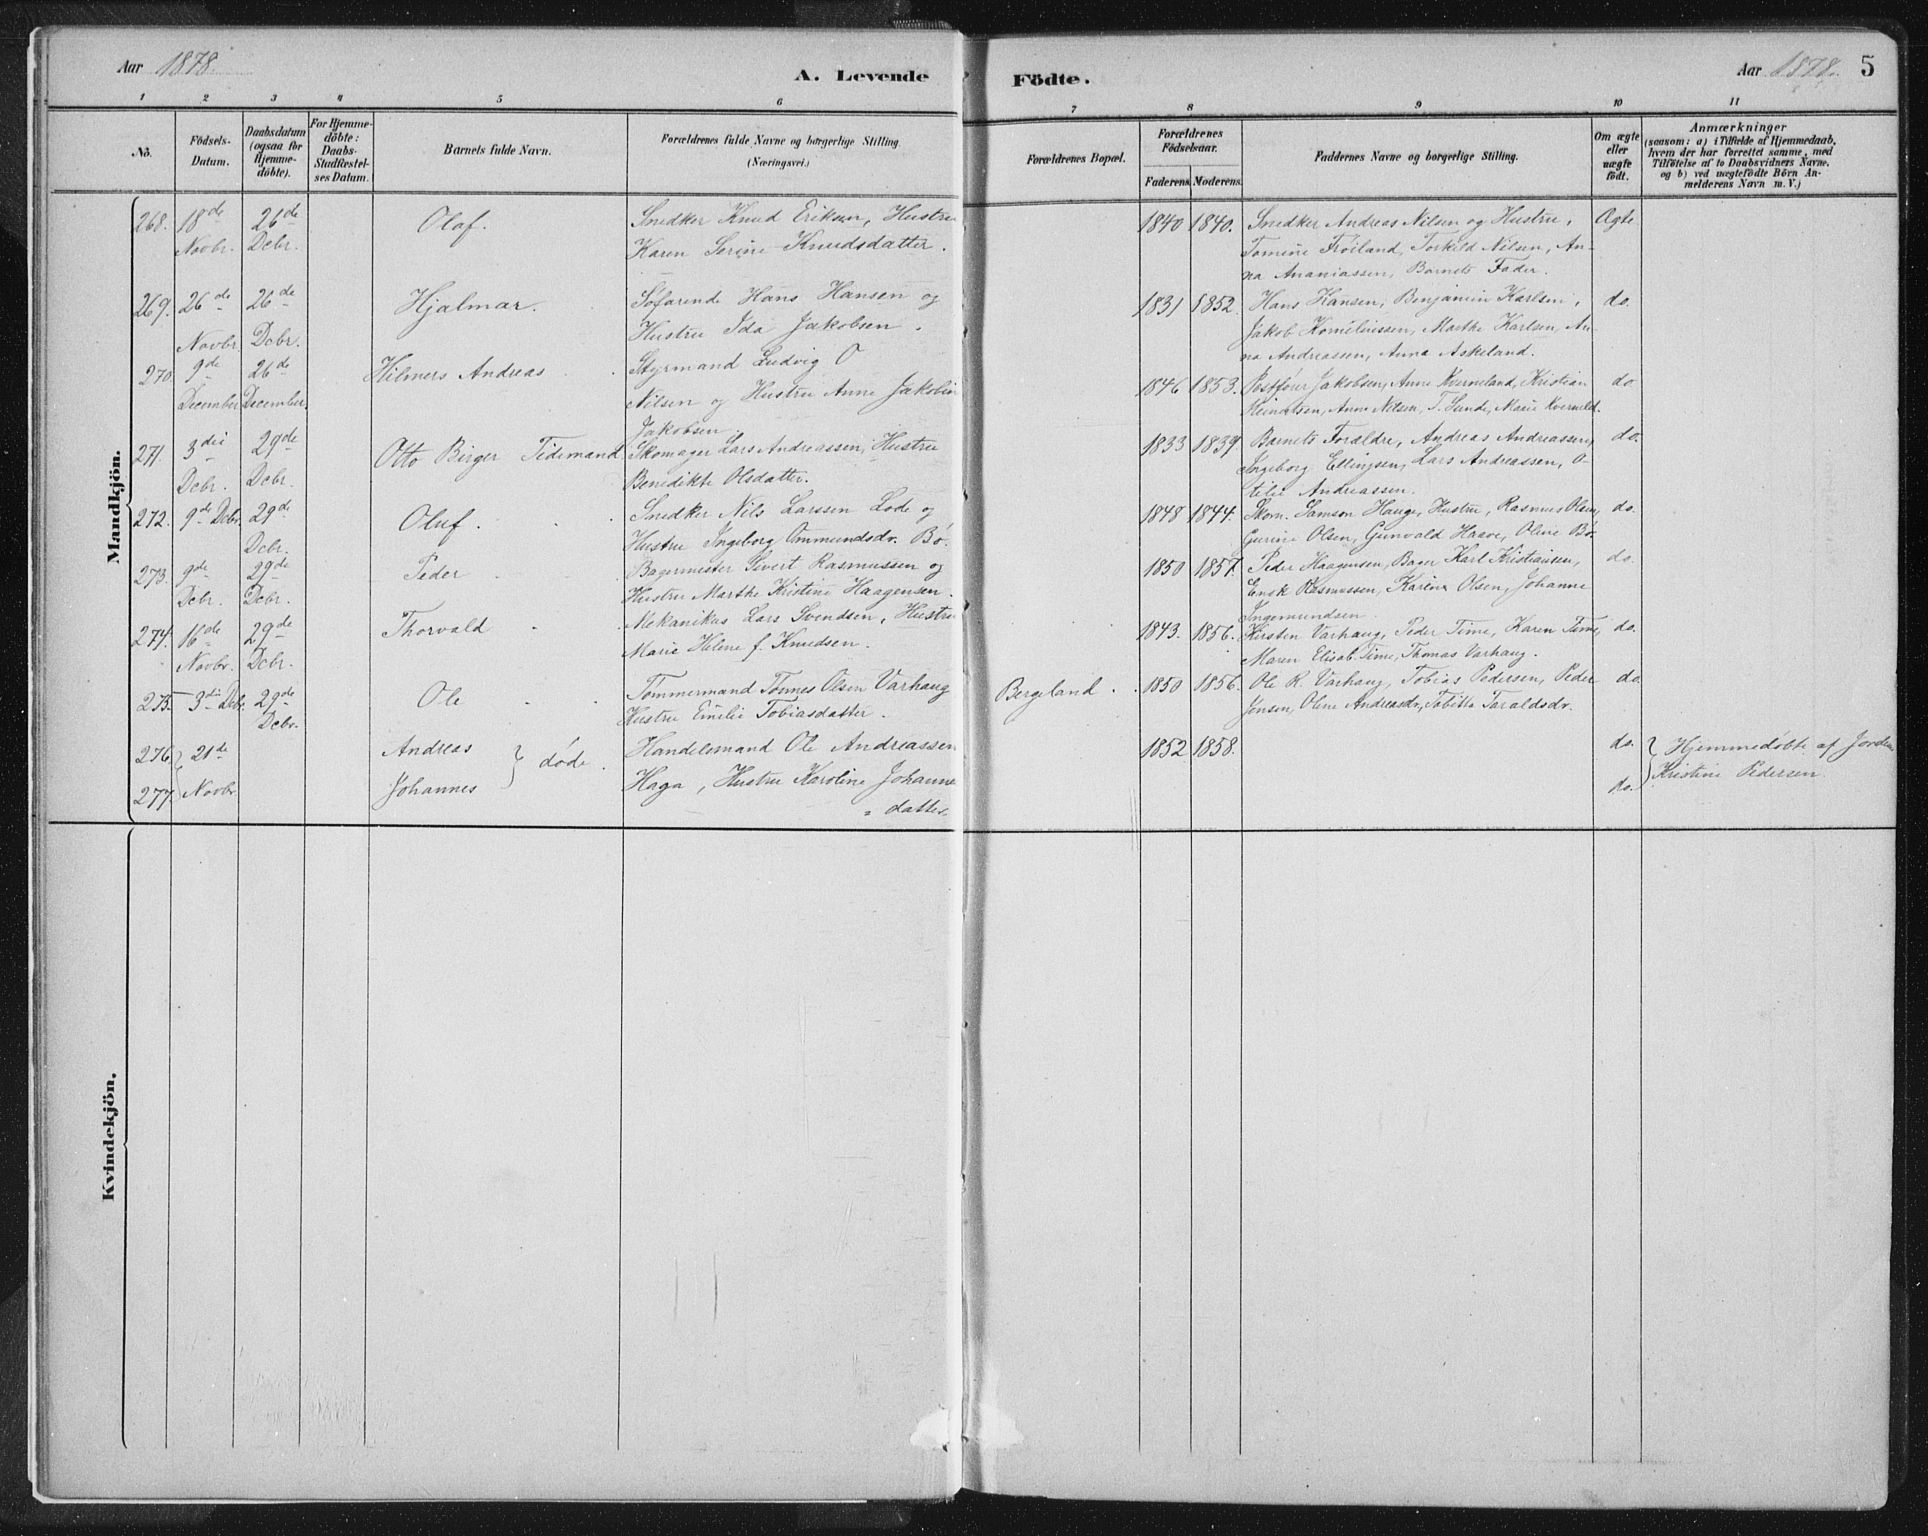 Aar 1878.
A. Levende
Födte.
Aar 1878. 5
1 2 3 4 5 6 7 8 9 10 11
No.
Födsels-
Datum.
Daabsdatum
(ogsaa for
Hjemme-
döbte).
For Hjemme-
döbte:
Daabs-
Stadfæstel-
ses Datum.
Barnets fulde Navn.
Forældrenes fulde Navne og borgerlige Stilling
(Næringsvei.)
Forældrenes Bopæl.
Forældrenes
Födselsaar.
Faderens. Moderens.
Faddernes Navne og borgerlige Stilling.
Om ægte
eller
uægte
födt.
Anmærkninger
(saasom: a) i Tilfælde af Hjemmedaab,
hvem der har forrettet samme, med
Tilföielse af to Daabsvidners Navne,
og b) ved uægtefödte Börn An-
melderens Navn m. V.)
Mandkjön.
268. 18de Novbr. 26de Dcbr. Olaf.
Snedker Knud Eriksen, Hustru
Karen Serine Knudsdatter.
1840 1840.
Snedker Andreas Nilsen og Hustru,
Tomine Fröiland, Torkild Nilsen, An-
na Ananiassen, Barnets Fader.
Ægte
269. 26de Novbr. 26de Dcbr. Hjalmar.
Söfarende Hans Hansen og
Hustru Ida Jakobsen.
1831 1852.
Hans Hansen, Benjamin Karlsen,
Jakob Korneliussen, Marthe Karlsen, An-
na Andreassen, Anna Askeland.
do.
270. 9de December 26de December. Hilmers Andreas
Styrmand Ludvig O
Nilsen og Hustru Anne Jakobine
Jakobsen.
1846 1853.
Postförer Jakobsen, Anne Kverneland, Kristian
Anne Nilsen, T. Lunde, Marie Kverneld.
do.
271. 3die Dcbr. 29de Dcbr. Otto Birger Tidemand
Skomager Lars Andreassen, Hustru
Benedikte Olsdatter.
1833 1839.
Barnets Foraldre, Andreas Andreassen,
Ingeborg Ellingsen, Lars Andreassen, O-
tilie Andreassen.
do.
272. 9de Dcbr. 29de Dcbr. Oluf.
Snedker Nils Larssen Lode og
Hustru Ingeborg Ommundsdr. Bö.
1848 1844.
Skom. Samson Hauge, Hustru, Rasmus Olsen,
Gurine Olsen, Gunvald Haave, Oline Bö.
do.
273. 9de Dcbr. 29de Dcbr. Peder
Bagermester Sivert Rasmussen og
Hustru Marthe Kristine Haagensen.
1850 1857.
Peder Haagensen, Bager Karl Kristiansen,
Enok Rasmussen, Karine Olsen, Johanne
Ingemundsen
do.
274. 16de Novbr. 29de Dcbr. Thorvald
Mekanikus Lars Svendsen, Hustru
Marie Helene f. Knudsen.
1843. 1856.
Kirsten Varhaug, Peder Time, Karen Time,
Maren Elisab. Time, Thomas Varhaug.
do.
275. 3die Dcbr. 29de Dcbr. Ole
Tömmermand Tönnes Olsen Varhaug
Hustru Emilie Tobiasdatter.
Bergeland.
1850 1856.
Ole R. Varhaug, Tobias Pedersen, Peder
Jonsen, Olene Andreasdr., Tobitha Taraldsdr.
do.
276. 21de Andreas } döde.
277. Novbr. Johannes
Handelsmand Ole Andreassen
Haga, Hustru Karoline Johanne
"datter.
1852 1858.
do.
do.
Hjemmedöbte af
Kristine Pedersen
Kvindekjön.